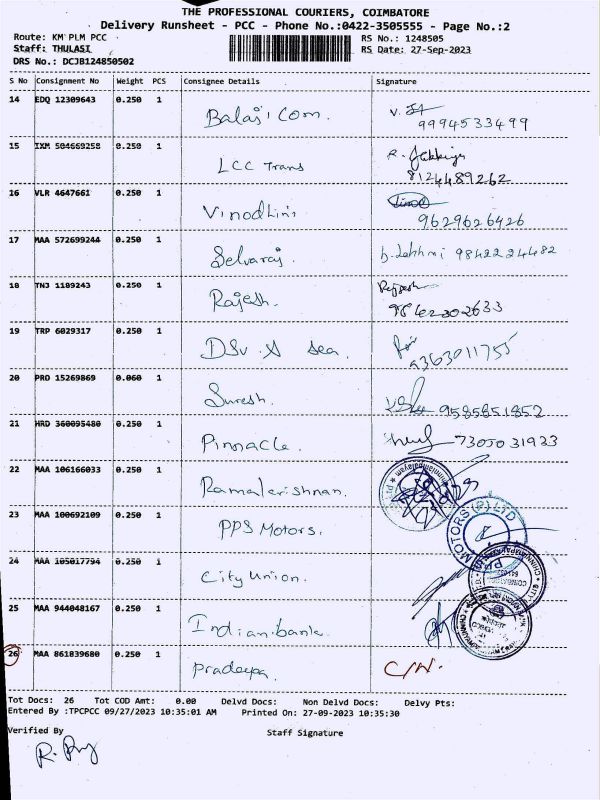 THE PROFESSIONAL COURIERS, COIMBATORE
Delivery Runsheet - PCC - Phone No.:0422-3505555 - Page No.:2
Route: KM PLM PCC
RS No.: 1248505
Staff: THULASI
RS Date: 27-Sep-2023
DRS No.: DCJB124850502
S No Consignment No Weight PCS Consignee Details Signature
14 EDQ 12309643 0.250 1 Balaji Com.
9994533499
15 IXM 504669258 0.250 1 LCC Trans
8124489262
16 VLR 4647661 0.250 1 Vinodhini
9629626426
17 MAA 572699244 0.250 1 Selvaraj. 9842224482
18 TNJ 1109243 0.250 1 Rajesh. Rajesh
9842302633
19 TRP 6029317 0.250 1 DSV A sea.
9363011755
20 PRO 15269869 0.060 1 Suresh. 9585851852
21 HRD 360095480 0.250 1 Pinnacle.
22 MAA 106166033 0.250 1 Ramakrishnan.
23 MAA 100692109 0.250 1 PPS Motors.
MOTORS (P) LTD
24 MAA 105017794 0.250 1 City Union.
25 MAA 944048167 0.250 1 Indian bank
26 MAA 861839680 0.250 1 Pradeepa.
Tot Docs: 26 Tot COD Amt: 0.00 Delvd Docs: Non Delvd Docs: Delvy Pts:
Entered By :TPCPCC 09/27/2023 10:35:01 AM Printed On: 27-09-2023 10:35:30
Verified By Staff Signature